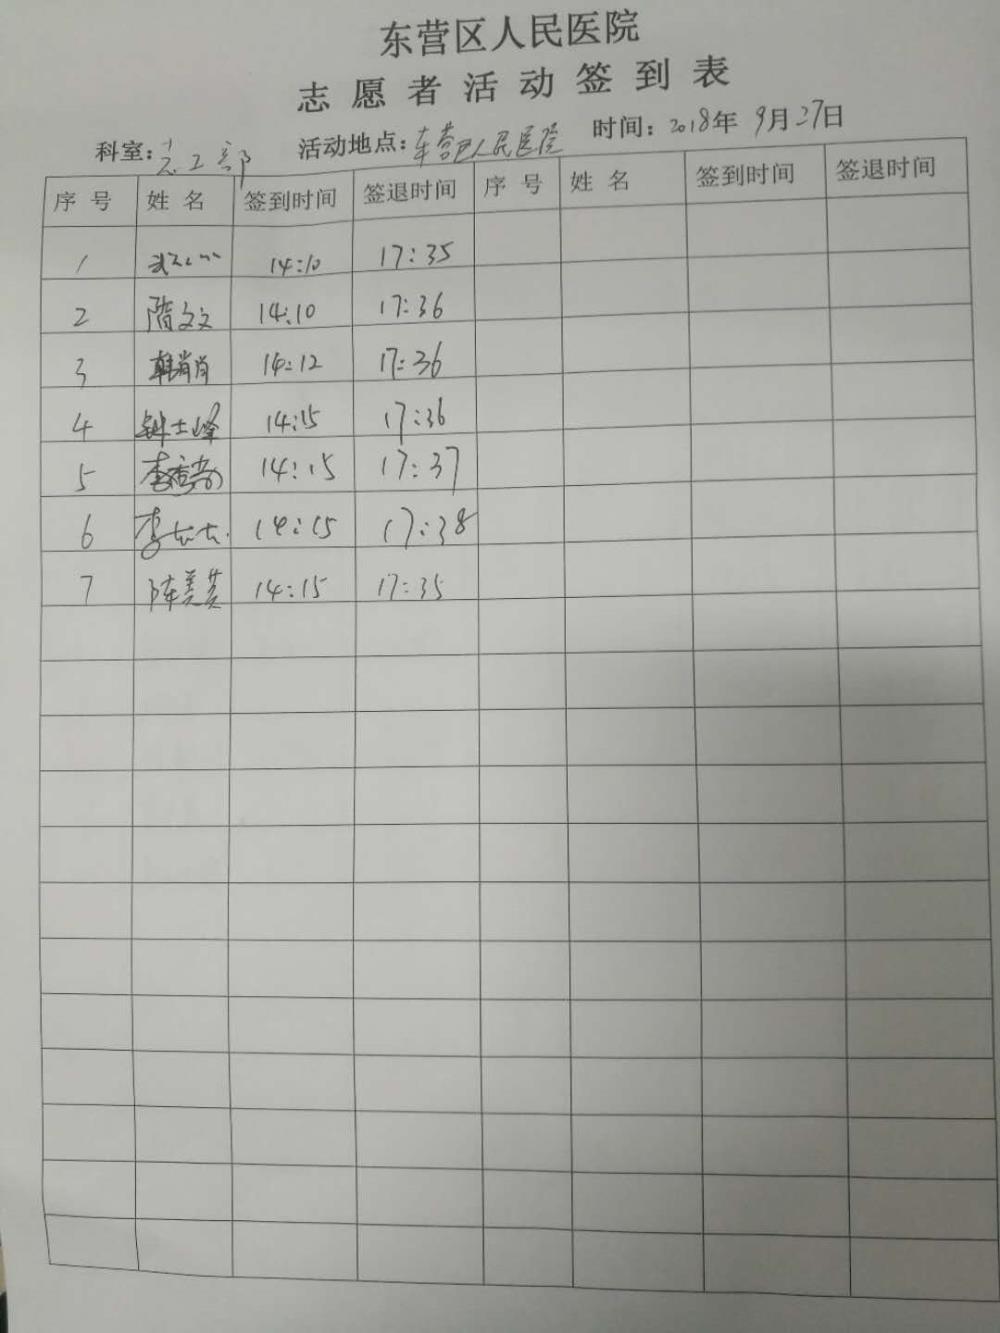 东营区人民医院
志愿者活动签到表
科室：志工部 活动地点：东营区人民医院 时间：2018年9月27日
序号 姓名 签到时间 签退时间 序号 姓名 签到时间 签退时间
1 14:10 17:35
2 隋文文 14:10 17:36
3 韩肖肖 14:12 17:36
4 钟士峰 14:15 17:36
5 李 14:15 17:37
6 李 14:15 17:38
7 陈美 14:15 17:35